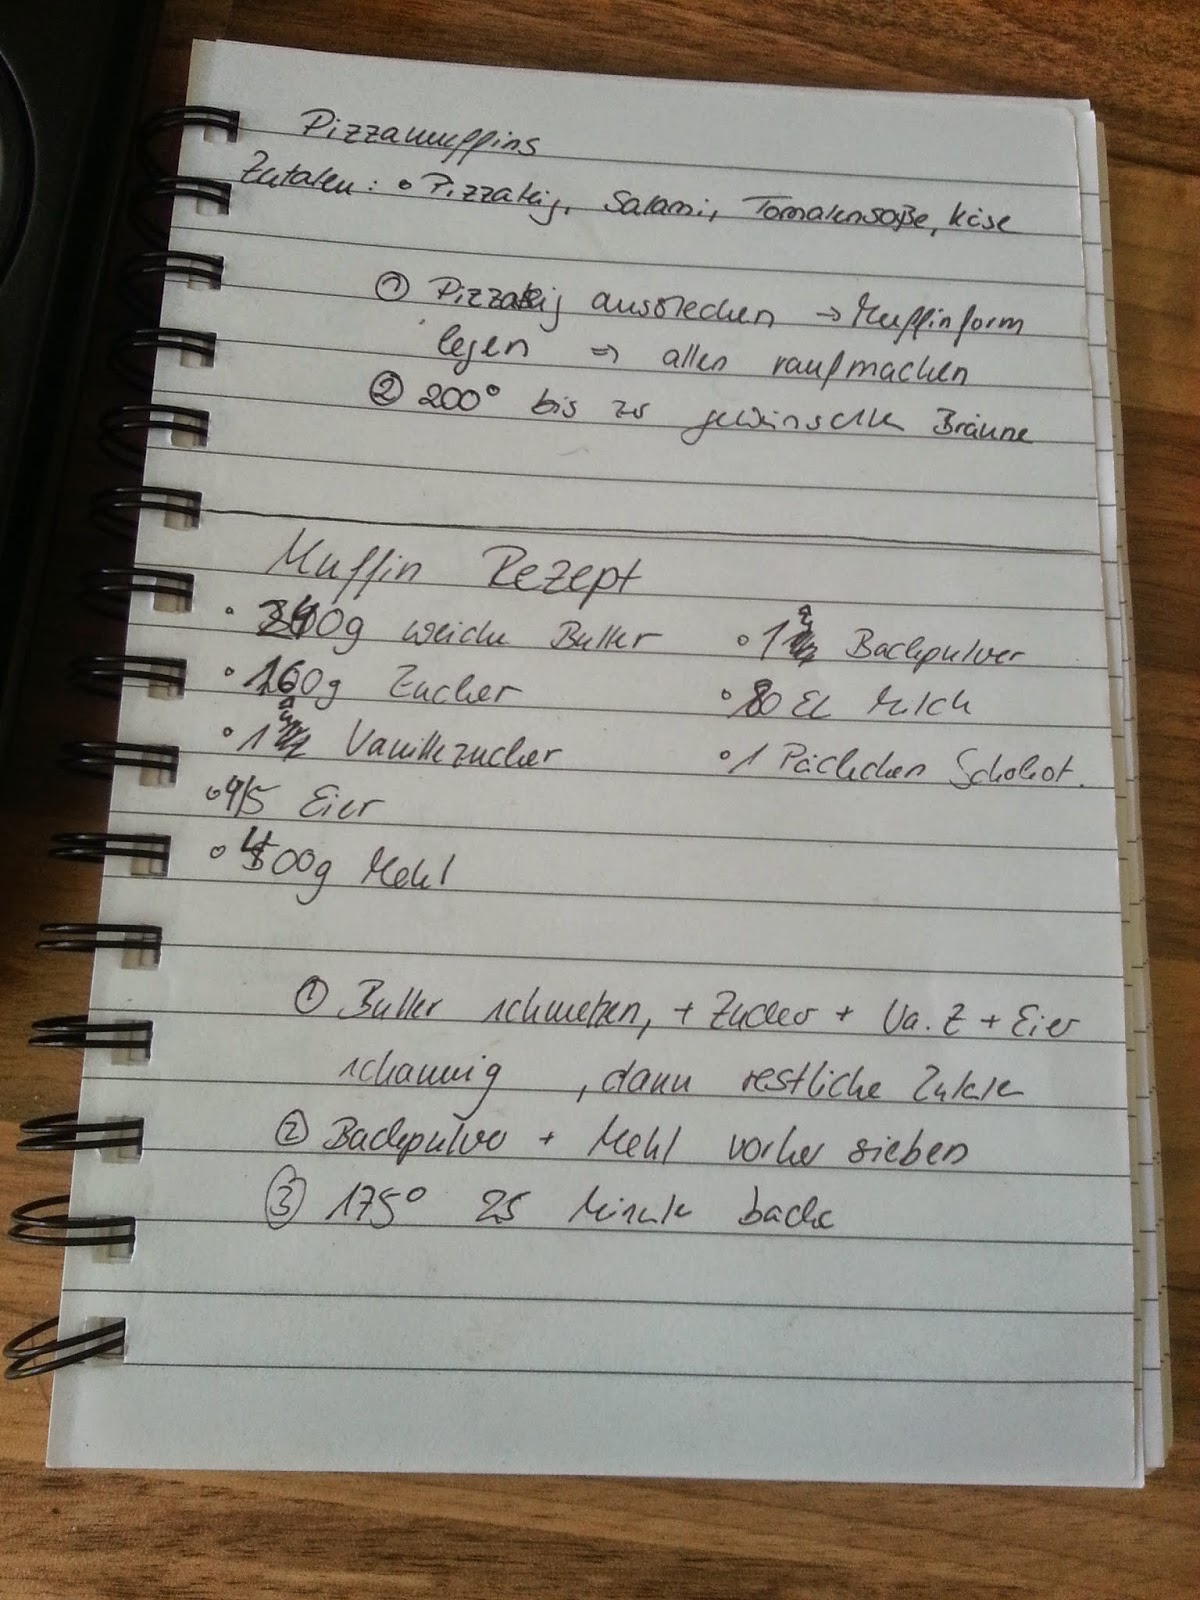 Pizzamuffins
Zutaten: • Pizzateig, Salami, Tomatensoße, Käse
① Pizzateig ausstechen → Muffinform
legen ⇒ allen raufmachen
② 200° bis zs gewünschte Bräune
Muffin Rezept
• g weiche Butter
• 160g Zucker
• 1 Vanillezucker
• 4/5 Eier
• 400g Mehl
• 1 Backpulver
• EL Milch
• 1 Päckchen Schokot.
① Butter schmelzen, + Zucker + Va. Z + Eier
schaumig , dann restliche Zutate
② Backpulver + Mehl vorher sieben
③ 175° 25 Minute backe